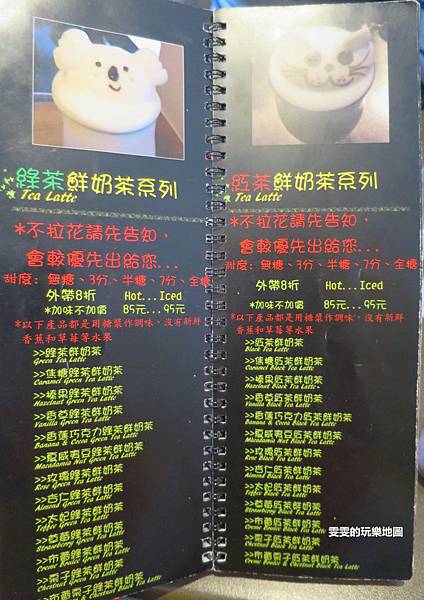 綠茶鮮奶茶系列
Tea Latte
*不拉花請先告知,
會較優先出給您...
甜度：無糖、3分、半糖、7分、全糖
外帶8折 Hot...Iced
*加味不加價 85元...95元
*以下產品都是用糖漿作調味,沒有新鮮
香蕉和草莓等水果
>>綠茶鮮奶茶
Green Tea Latte
>>焦糖綠茶鮮奶茶
Caramel Green Tea Latte
>>榛果綠茶鮮奶茶
Hazelnut Green Tea Latte
>>香草綠茶鮮奶茶
Vanilla Green Tea Latte
>>香蕉巧克力綠茶鮮奶茶
Banana & Cocoa Green Tea Latte
>>夏威夷豆綠茶鮮奶茶
Macadamia Nut Green Tea Latte
>>玫瑰綠茶鮮奶茶
Rose Green Tea Latte
>>杏仁綠茶鮮奶茶
Almond Green Tea Latte
>>太妃綠茶鮮奶茶
Toffee Green Tea Latte
>>草莓綠茶鮮奶茶
Strawberry Green Tea Latte
>>布蕾綠茶鮮奶茶
Creme Brulee Green Tea Latte
>>栗子綠茶鮮奶茶
Chestnut Green Tea Latte
>>布蕾栗子綠茶鮮奶茶
紅茶鮮奶茶系列
Tea Latte
*不拉花請先告知,
會較優先出給您...
甜度：無糖、3分、半糖、7分、全糖
外帶8折 Hot...Iced
*加味不加價 85元...95元
*以下產品都是用糖漿作調味,沒有新鮮
香蕉和草莓等水果
>>紅茶鮮奶茶
Black Tea Latte
>>焦糖紅茶鮮奶茶
Caramel Black Tea Latte
>>榛果紅茶鮮奶茶
Hazelnut Black Tea Latte
>>香草紅茶鮮奶茶
Vanilla Black Tea Latte
>>香蕉巧克力紅茶鮮奶茶
Banana & Cocoa Black Tea Latte
>>夏威夷豆紅茶鮮奶茶
Macadamia Nut Black Tea Latte
>>玫瑰紅茶鮮奶茶
Rose Black Tea Latte
>>杏仁紅茶鮮奶茶
Almond Black Tea Latte
>>太妃紅茶鮮奶茶
Toffee Black Tea Latte
>>草莓紅茶鮮奶茶
Strawberry Black Tea Latte
>>布蕾紅茶鮮奶茶
Creme Brulee Black Tea Latte
>>栗子紅茶鮮奶茶
Chestnut Black Tea Latte
>>布蕾栗子紅茶鮮奶茶
Creme Brulee & Chestnut Black Tea Latte
雯雯的玩樂地圖